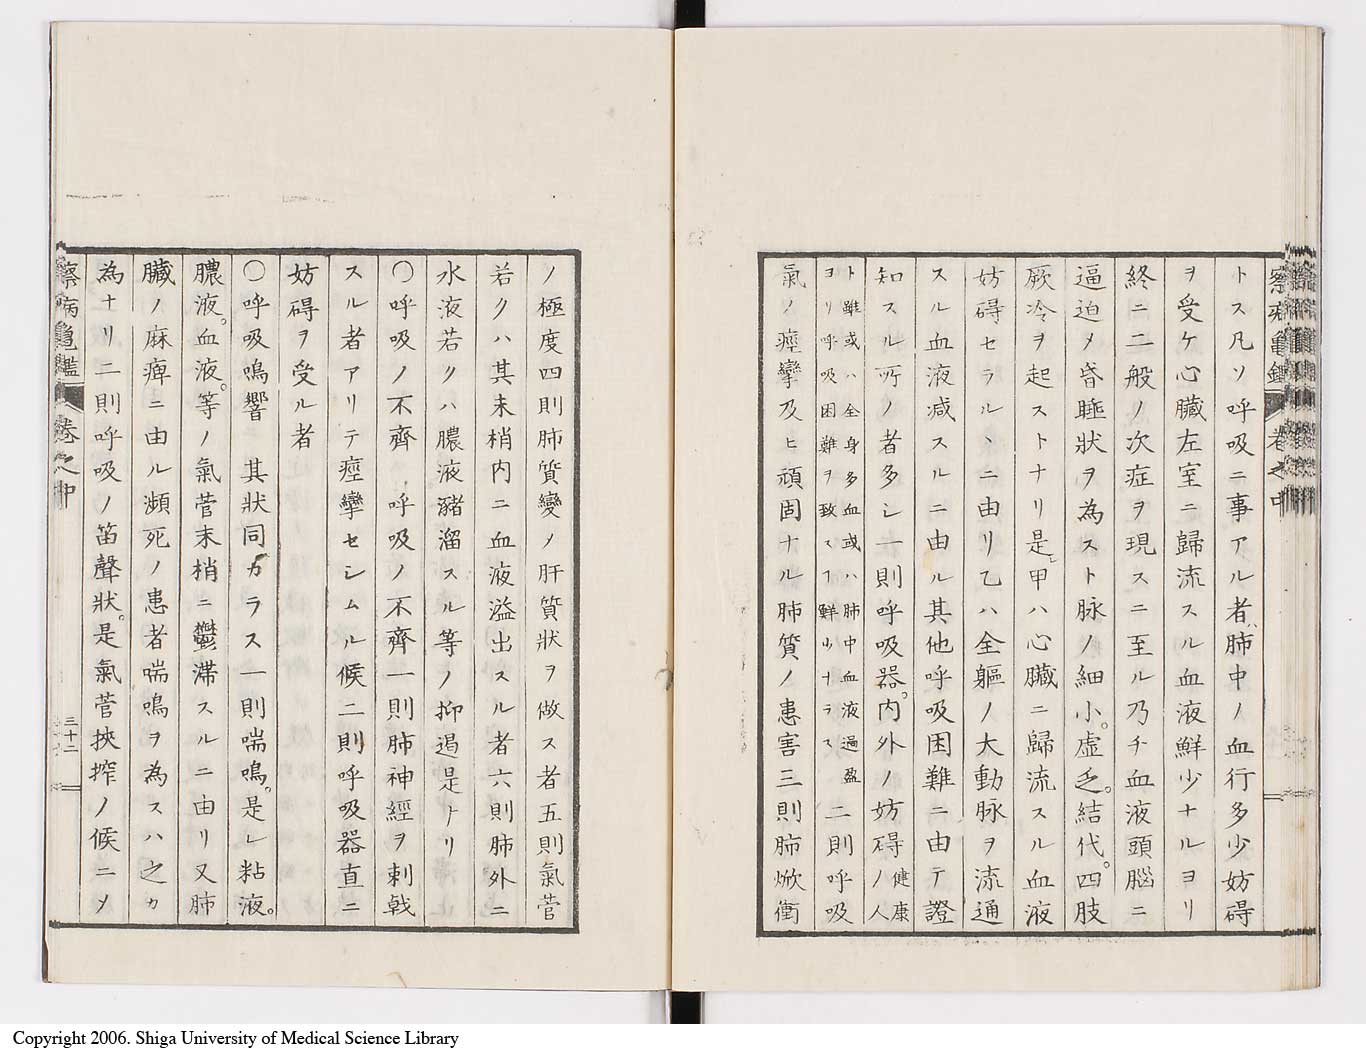 察病亀鑑 巻之中
トス凡ソ呼吸ニ事アル者肺中ノ血行多少妨碍
ヲ受ケ心臓左室ニ歸流スル血液鮮少ナルヨリ
終ニ二般ノ次症ヲ現スニ至ル乃チ血液頭腦ニ
逼迫メ昏睡狀ヲ為スト脉ノ細小。虚乏。結代。四肢
厥冷ヲ起ストナリ是レ甲ハ心臓ニ歸流スル血液
妨碍セラルヽニ由リ乙ハ全軀ノ大動脉ヲ流通
スル血液减スルニ由ル其他呼吸困難ニ由テ證
知スル所ノ者多シ一則呼吸器。内外ノ妨碍ノ健康人
ト雖或ハ全身多血或ハ肺中血液過盈
ヨリ呼吸困難ヲ致スヿ鮮少ナラス二則呼吸
氣ノ痙攣及ヒ頑固ナル肺質ノ患害三則肺焮衝
ノ極度四則肺質變ノ肝質狀ヲ做ス者五則氣管
若クハ其末梢内ニ血液溢出スル者六則肺外ニ
水液若クハ膿液豬溜スル等ノ抑遏是ナリ
〇呼吸ノ不齊 呼吸ノ不齊一則肺神經ヲ刺戟
スル者アリテ痙攣セシムル候二則呼吸器直ニ
妨碍ヲ受ル者
〇呼吸鳴響 其狀同カラス一則喘鳴。是レ粘液。
膿液。血液。等ノ氣管末梢ニ鬱滞スルニ由リ又肺
臓ノ麻痺ニ由ル瀕死ノ患者喘鳴ヲ為スハ之カ
為ナリ二則呼吸ノ笛聲狀。是氣管挾搾ノ候ニメ
察病亀鑑 巻之中 三十二
Copyright 2006. Shiga University of Medical Science Library